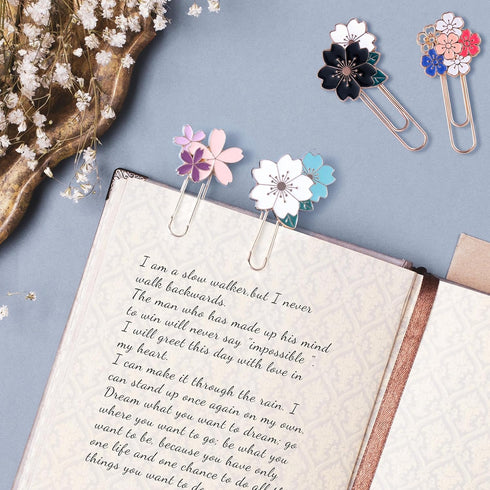 I am a slow walker,but I never
walk backwards.
The man who has made up his mind
to win will never say "impossible ".
I will greet this day with love in
my heart.
I can make it through the rain. I
can stand up once again on my own.
Dream what you want to dream; go
where you want to go; be what you
want to be, because you have only
one life and one chance to do all the
things you want to do